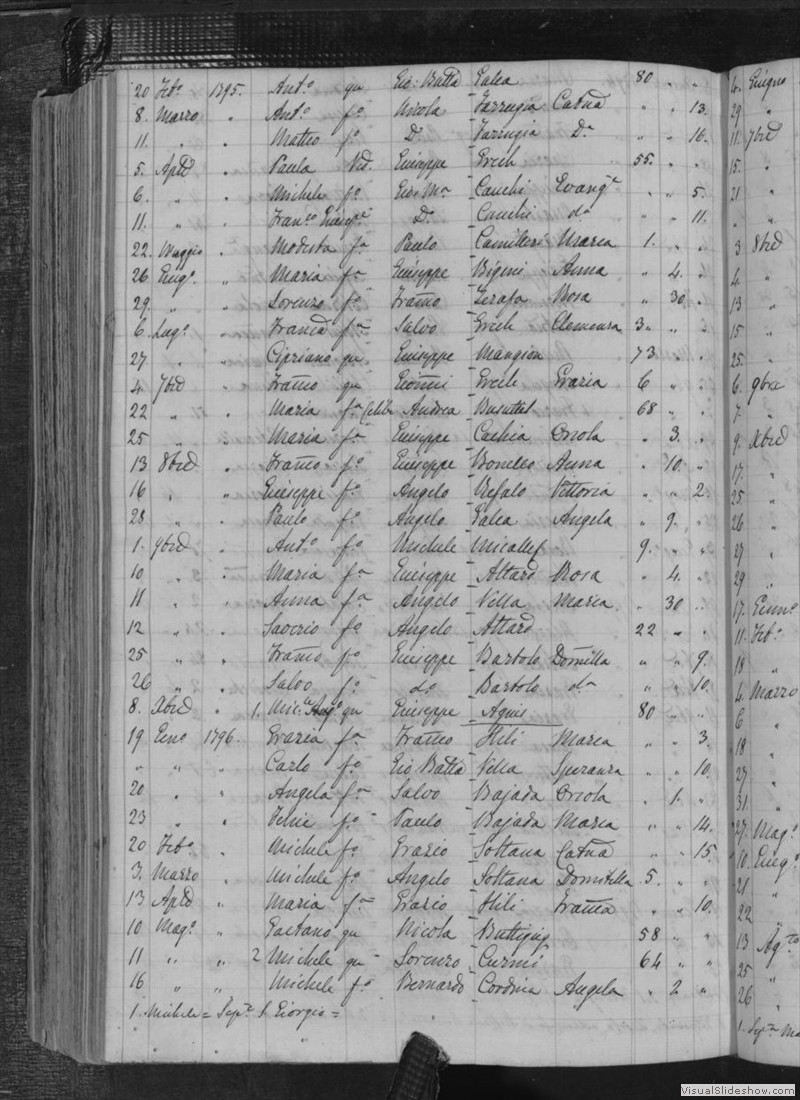 20 Feb° 1795. Ant° qu Gio: Batta Galea 80 " "
8. Marzo " Ant° f° Nicola Farrugia Catna " " 13.
11. " " Matteo f° D° Farrugia Da " " 16.
5. Aple " Paula Ved. Giuseppe Grech 55. " "
6. " " Michele f° Gio: Ma Cauchi Evange " " 5.
11. " " Franco Giuseppe D° Cauchi da " " 11.
22. Maggio " Modesta fa Paulo Camilleri Maria 1. " "
26 Giug° " Maria fa Giuseppe Bigeni Anna " 4. "
29. " " Lorenzo f° Franco Zerafa Rosa " 30. "
6. Lug° " Franca fa Salvo Grech Clemenza 3. " "
27. " " Cipriano qu Giuseppe Mangion 73 " "
4. 7bre " Franco qu Gionni Grech Grazia 6 " "
22 " " Maria fa Celibe Andrea Busuttil 68 " "
25 " " Maria fa Giuseppe Cachia Orsola " 3. "
13 8bre " Franco f° Giuseppe Bondin Anna " 10. "
16 " " Giuseppe f° Angelo Refalo Vittoria " " 2.
28 " " Paulo f° Angelo Galea Angela " 9. "
1. 9bre " Ant° f° Michele Micallef 9. " "
10 " " Maria fa Giuseppe Attard Rosa " 4. "
11 " " Anna fa Angelo Vella Maria " 30 "
12 " " Saverio f° Angelo Attard 22 " "
25 " " Franco f° Giuseppe Bartolo Domilla " " 9.
26 " " Salvo f° d° Bartolo da " " 10.
8. Xbre " 1. Mic. Ang° qu Giuseppe Agius 80 " "
19 Gen° 1796. Grazia fa Franco Hili Maria " " 3.
" " " Carlo f° Gio Batta Vella Speranza " " 10.
20 " " Angela fa Salvo Bajada Orsola " 1. "
23 " " Felice f° Paulo Bajada Maria " " 14.
20 Feb° " Michele f° Grazio Soltana Catna " " 15.
3. Marzo " Michele f° Angelo Soltana Domitilla 5. " "
13 Aple " Maria fa Grazio Hili Franca " " 10.
10 Mag° " Gaetano qu Nicola Buttigieg 58 " "
11 " " 2 Michele qu Lorenzo Curmi 64 " "
16 " " Michele f° Bernardo Cordina Angela " 2 "
1. Michele = Sepe S. Giorgio =
4. Giugno
29 "
11. 7bre
15. "
21 "
" "
3 8bre
4. "
13 "
15 "
25. "
6. 9bre
7. "
9. Xbre
17. "
25. "
26 "
27 "
29 "
17. Genn°
11. Feb°
18 "
4. Marzo
6 "
18 "
27 "
31. "
27. Mag°
10. Giug°
21 "
22 "
13 Ag°to
25 "
26 "
1. Sepe Ma
VisualSlideshow.com